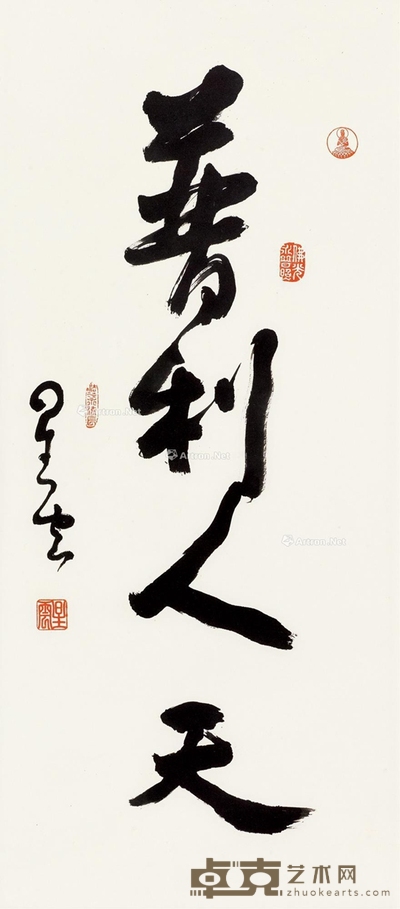 普利人天
佛光永普照
星雲
星雲
Artron.Net
Artron.Net
Artron.Net
卓克艺术网
zhuokearts.com